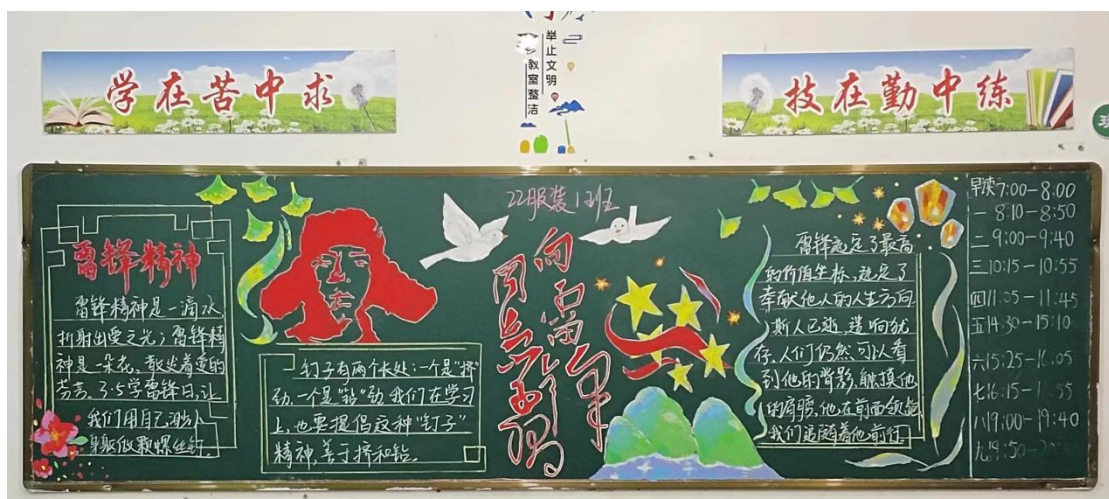 学在苦中求
举止文明
教室整洁
技在勤中练
22服装1班
雷锋精神
雷锋精神是一滴水
折射出爱之光；雷锋精
神是一朵花，散发着爱的
芳香。3·5学雷锋日，让
我们用自己
钉子有两个长处：一个是“挤”
劲，一个是“钻”劲，我们在学习
上，也要提倡这种“钉子”
精神，善于挤和钻。
向雷锋
同志
雷锋选定了最高
的价值坐标，选定了
奉献他人的人生方向
斯人已逝，遗响犹
存，人们仍然可以看
到他的背影，触摸他
的肩膀，他在前面领跑
我们追随着他前行
早读7:00-8:00
一8:10-8:50
二9:00-9:40
三10:15-10:55
四11:05-11:45
五14:30-15:10
六15:25-16:05
七16:15-
八19:00-19:40
九19:50-